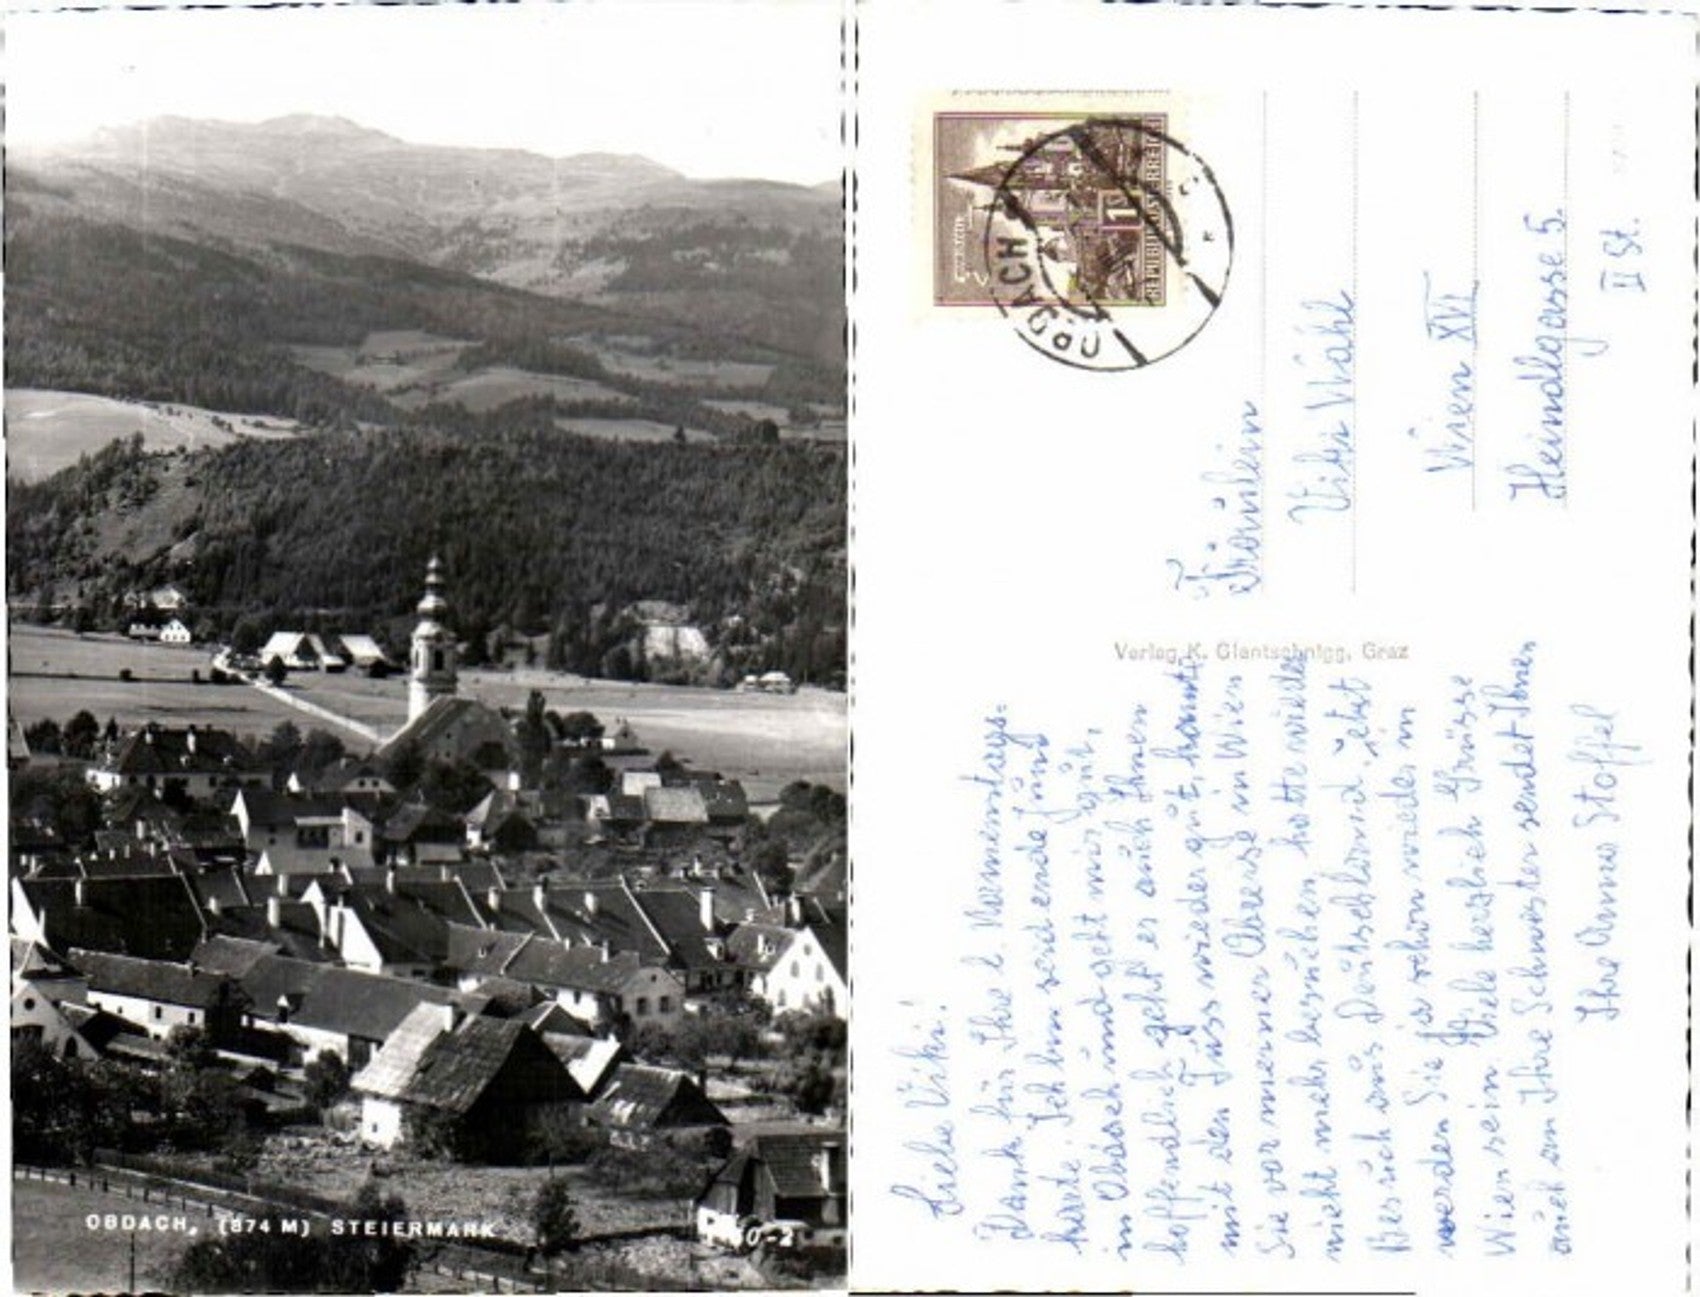 OBDACH, (874 M) STEIERMARK
REPUBLIK ÖSTERREICH
1
OBDACH
Fräulein
Viki Wähl
Wien XVI
Heindlgasse 5.
II St.
Verlag K. Glantschnigg, Graz
Liebe Viki!
Dank für Ihre l. Namenstags=
karte. Ich bin seid ende Juni
in Obdach und geht mir gut,
hoffendlich geht es auch Ihnen
mit den Fuss wieder gut, konnte
Sie vor meiner Abreise in Wien
nicht mehr besuchen hatte wieder
Besuch aus Deutschland. Jetzt
werden Sie ja schon wieder in
Wien sein. Viele herzlich Grüsse
auch an Ihre Schwester sendet Ihnen
Ihre Anna Stoffel